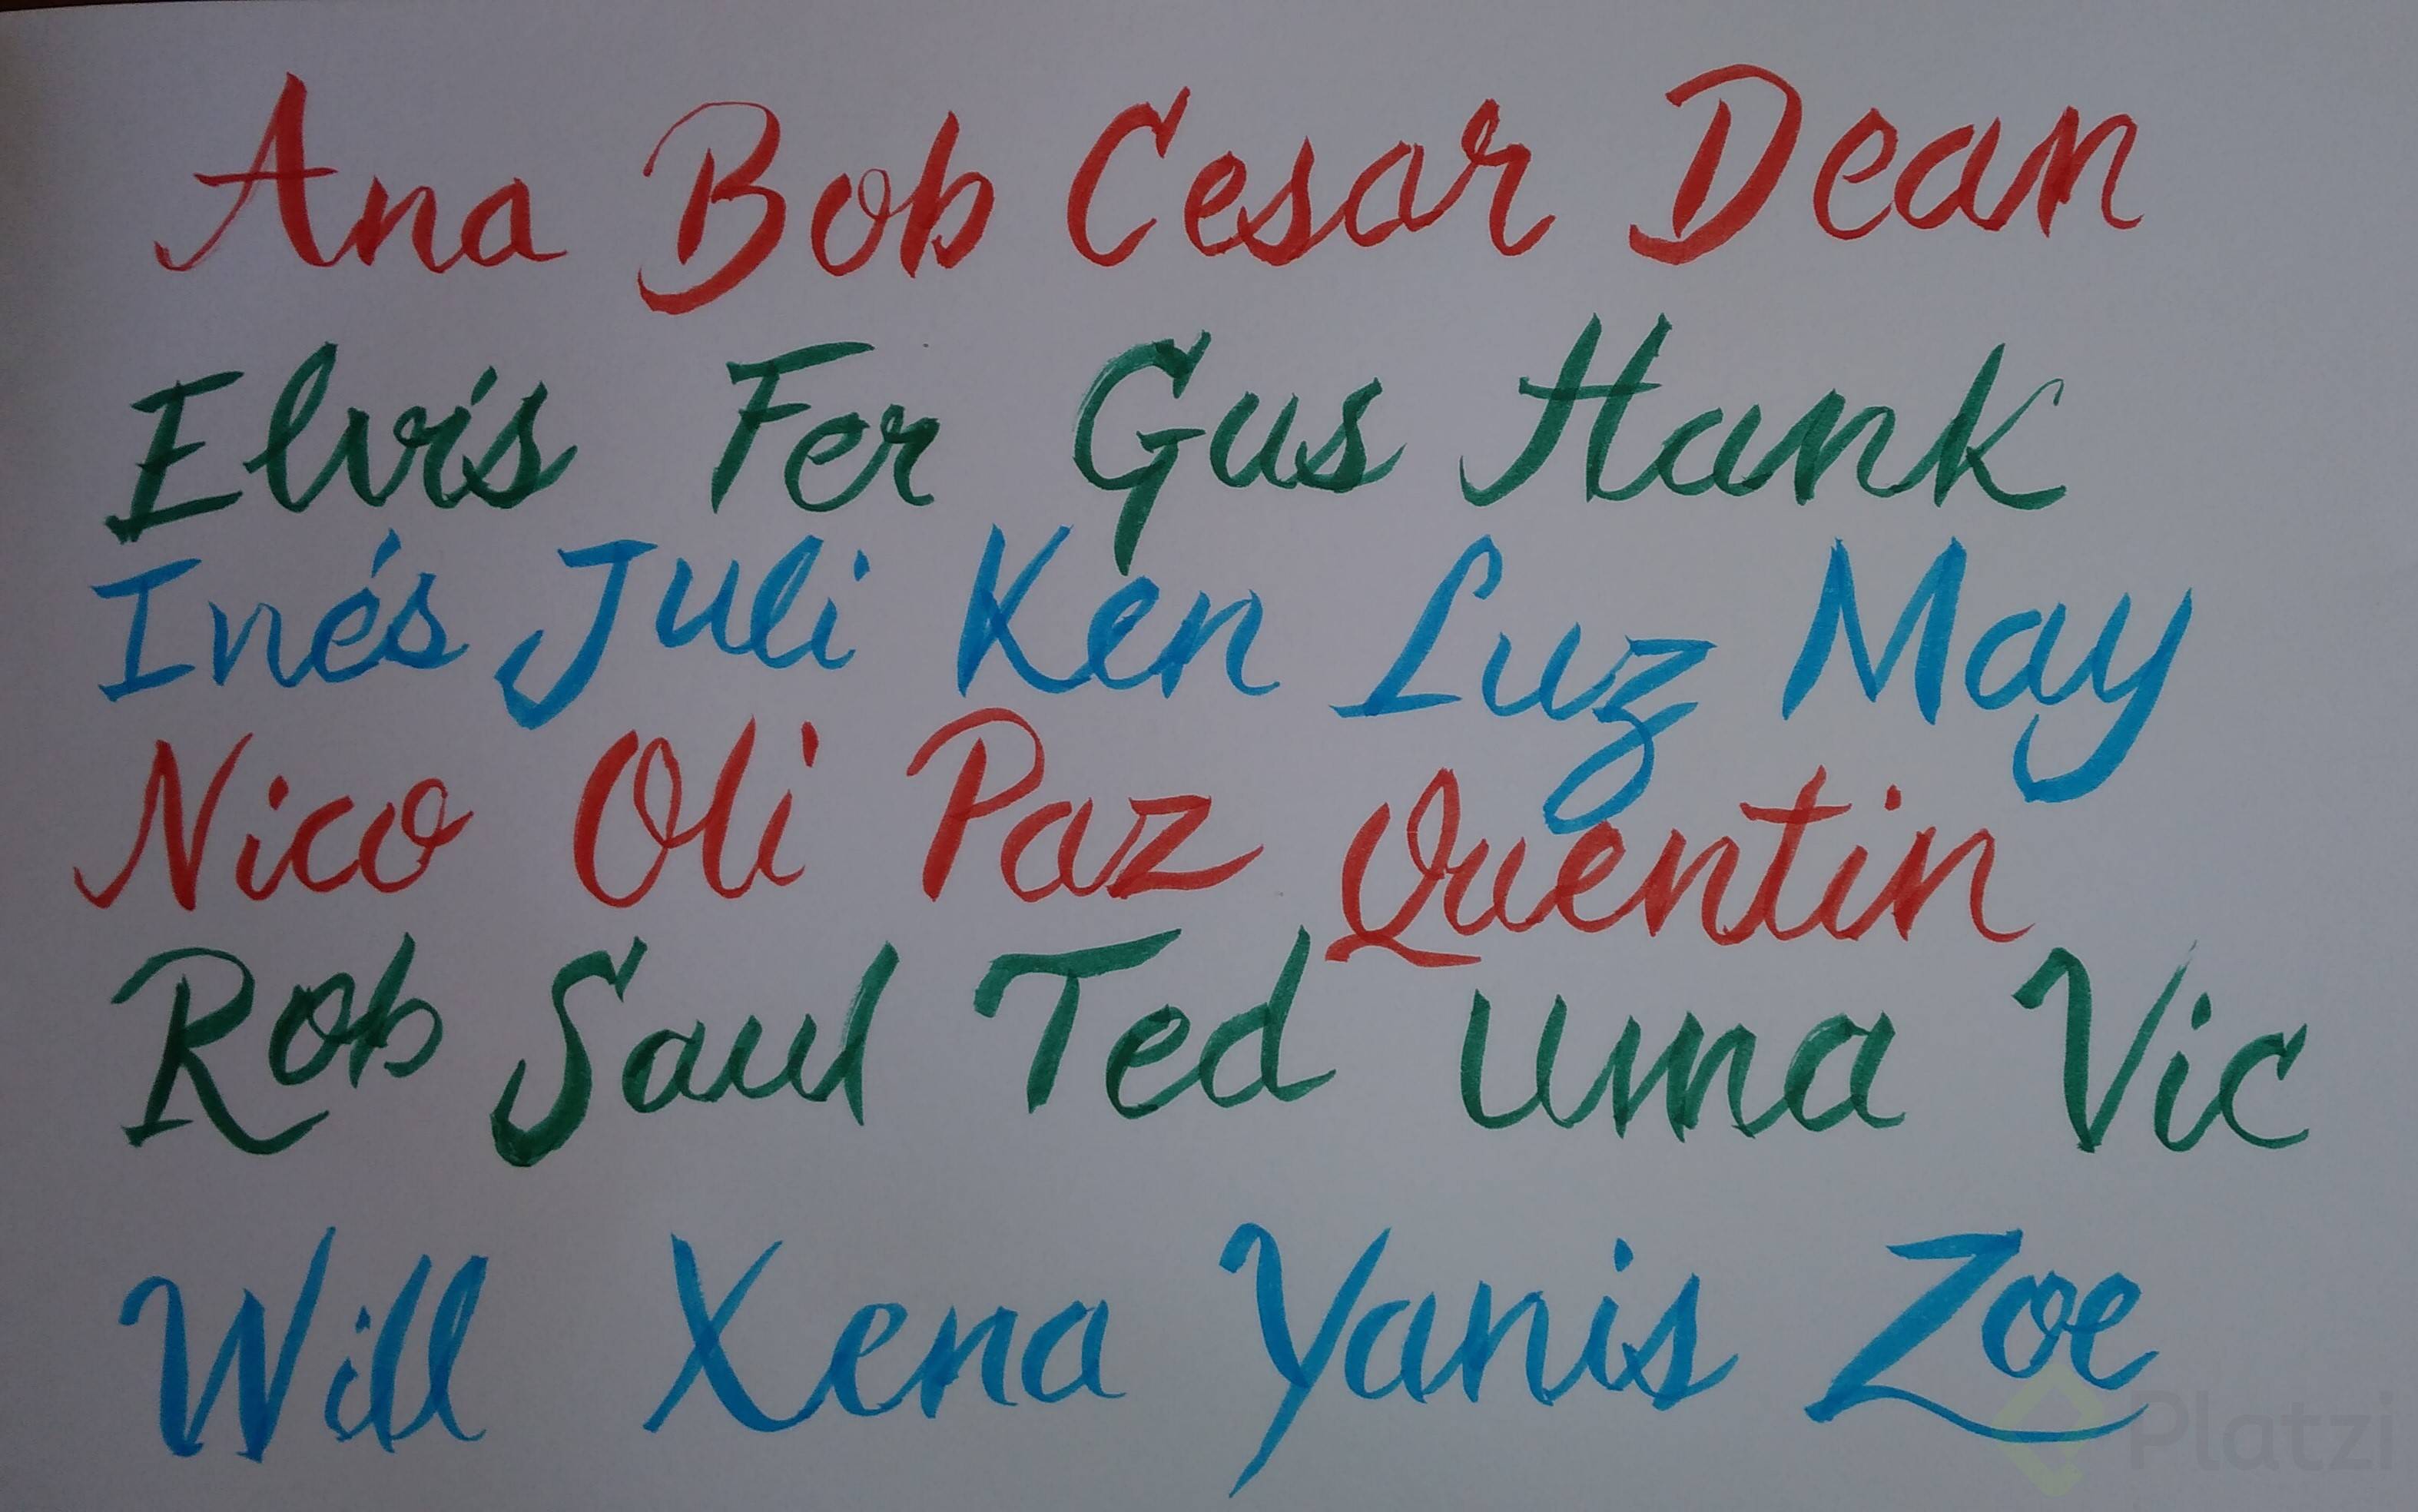 Ana Bob Cesar Dean
Elvis Fer Gus Hank
Inés Juli Ken Luz May
Nico Oli Paz Quentin
Rob Saul Ted Uma Vic
Will Xena Yanis Zoe
Platzi